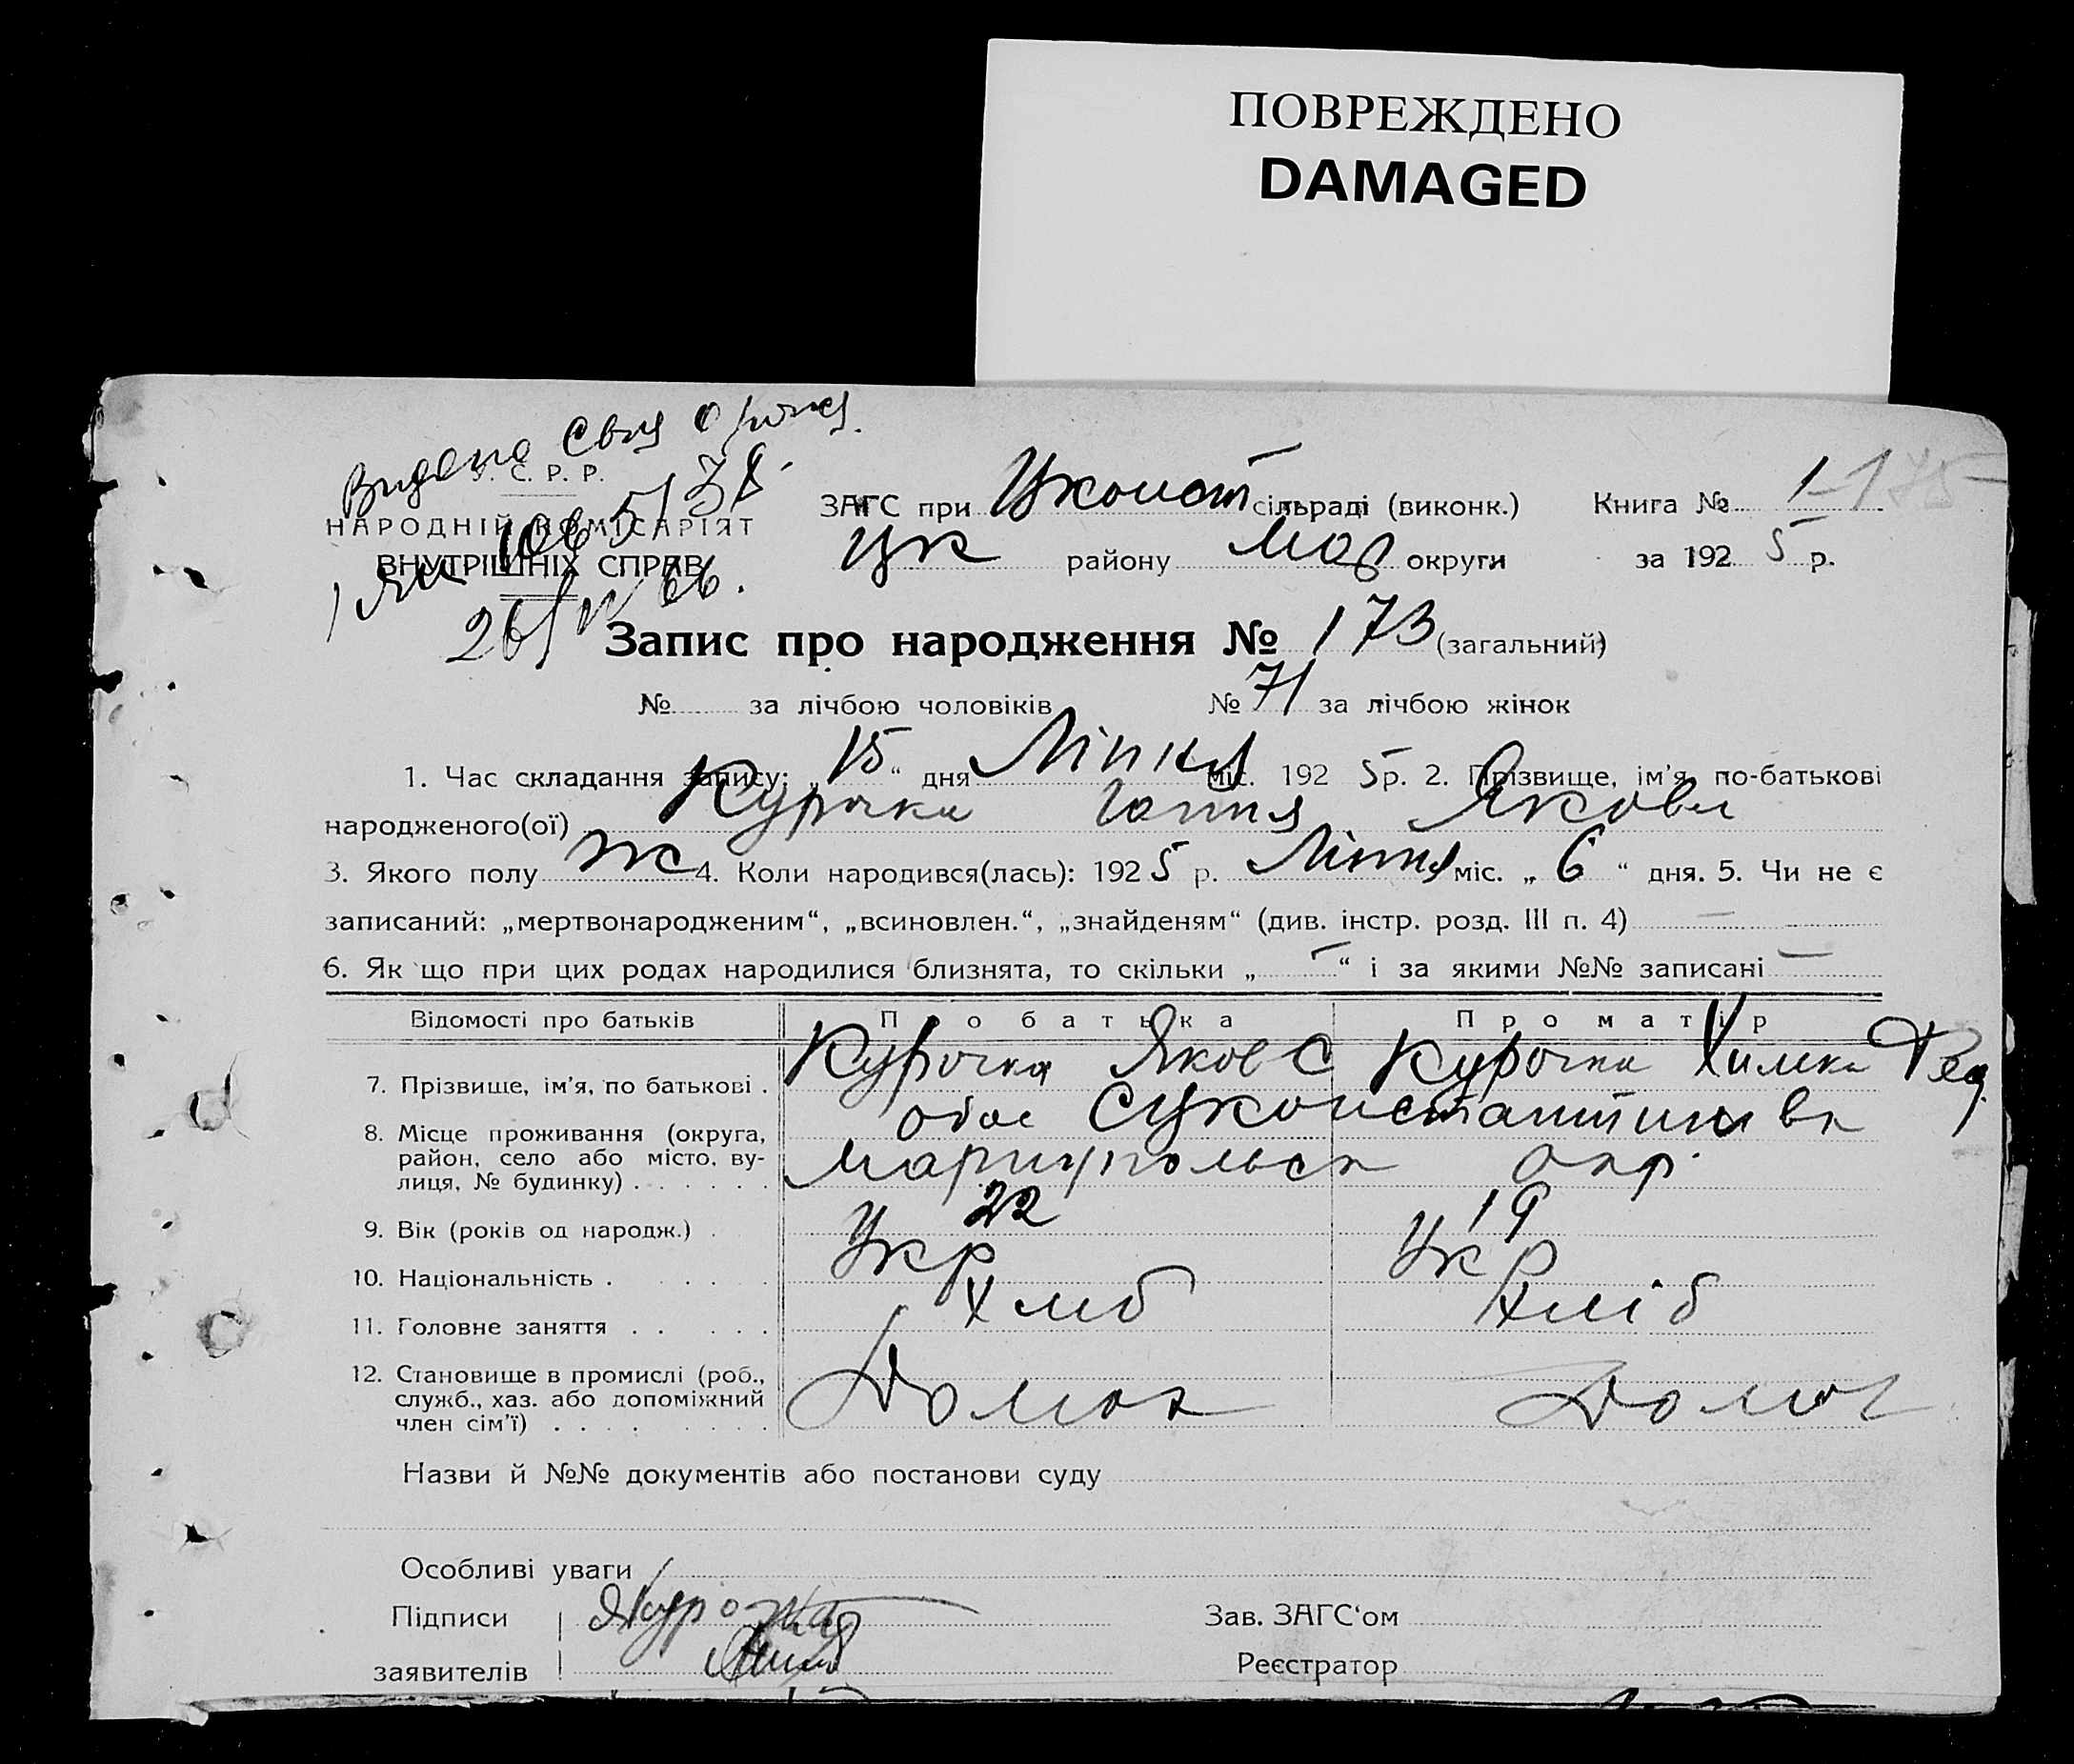 ПОВРЕЖДЕНО
DAMAGED
Видано
У. С. Р. Р.
НАРОДНІЙ КОМІСАРІЯТ
ВНУТРІШНІХ СПРАВ
ЗАГС при Уконст сільраді (виконк.) Книга № 1 175
Цк району Мар округи за 1925 р.
Запис про народження № 173 (загальний)
№ за лічбою чоловіків № 71 за лічбою жінок
1. Час складання запису: „15“ дня Липня міс. 1925 р. 2. Прізвище, ім'я, по-батькові
народженого(ої) Курочка Якови
3. Якого полу ж 4. Коли народився(лась): 1925 р. Липня міс. „6“ дня. 5. Чи не є
записаний: „мертвонародженим“, „всиновлен.“, „знайденям“ (див. інстр. розд. III п. 4) —
6. Як що при цих родах народилися близнята, то скільки „—“ і за якими №№ записані —
Відомості про батьків Про батька Про матір
7. Прізвище, ім'я, по батькові . Курочка Яков С Курочка Химка Фед.
8. Місце проживання (округа, район, село або місто, вулиця, № будинку) . . . . . .
Маріупольск окр.
9. Вік (років од народж.) . 22 19
10. Національність . . . . . Укр Укр
11. Головне заняття . . . . . Хліб Хліб
12. Становище в промислі (роб.,
служб., хаз. або допоміжний
член сім'ї) . . . . . . . .
Назви й №№ документів або постанови суду
Особливі уваги
Підписи Зав. ЗАГС'ом
заявителів Реєстратор